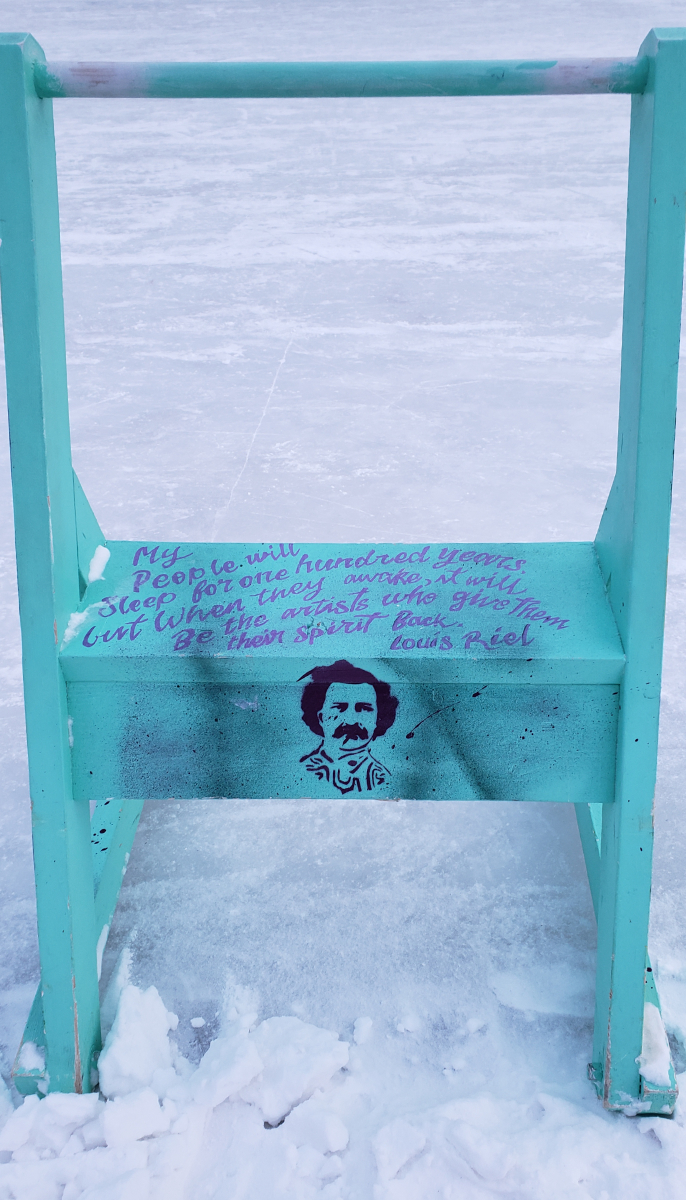 My
People will
Sleep for one hundred years
but When they awake, it will
Be the artists who give Them
their spirit Back.
Louis Riel